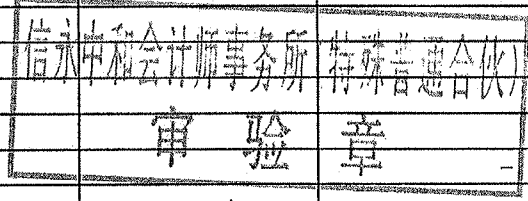 信永中和会计师事务所(特殊普通合伙)
审验章